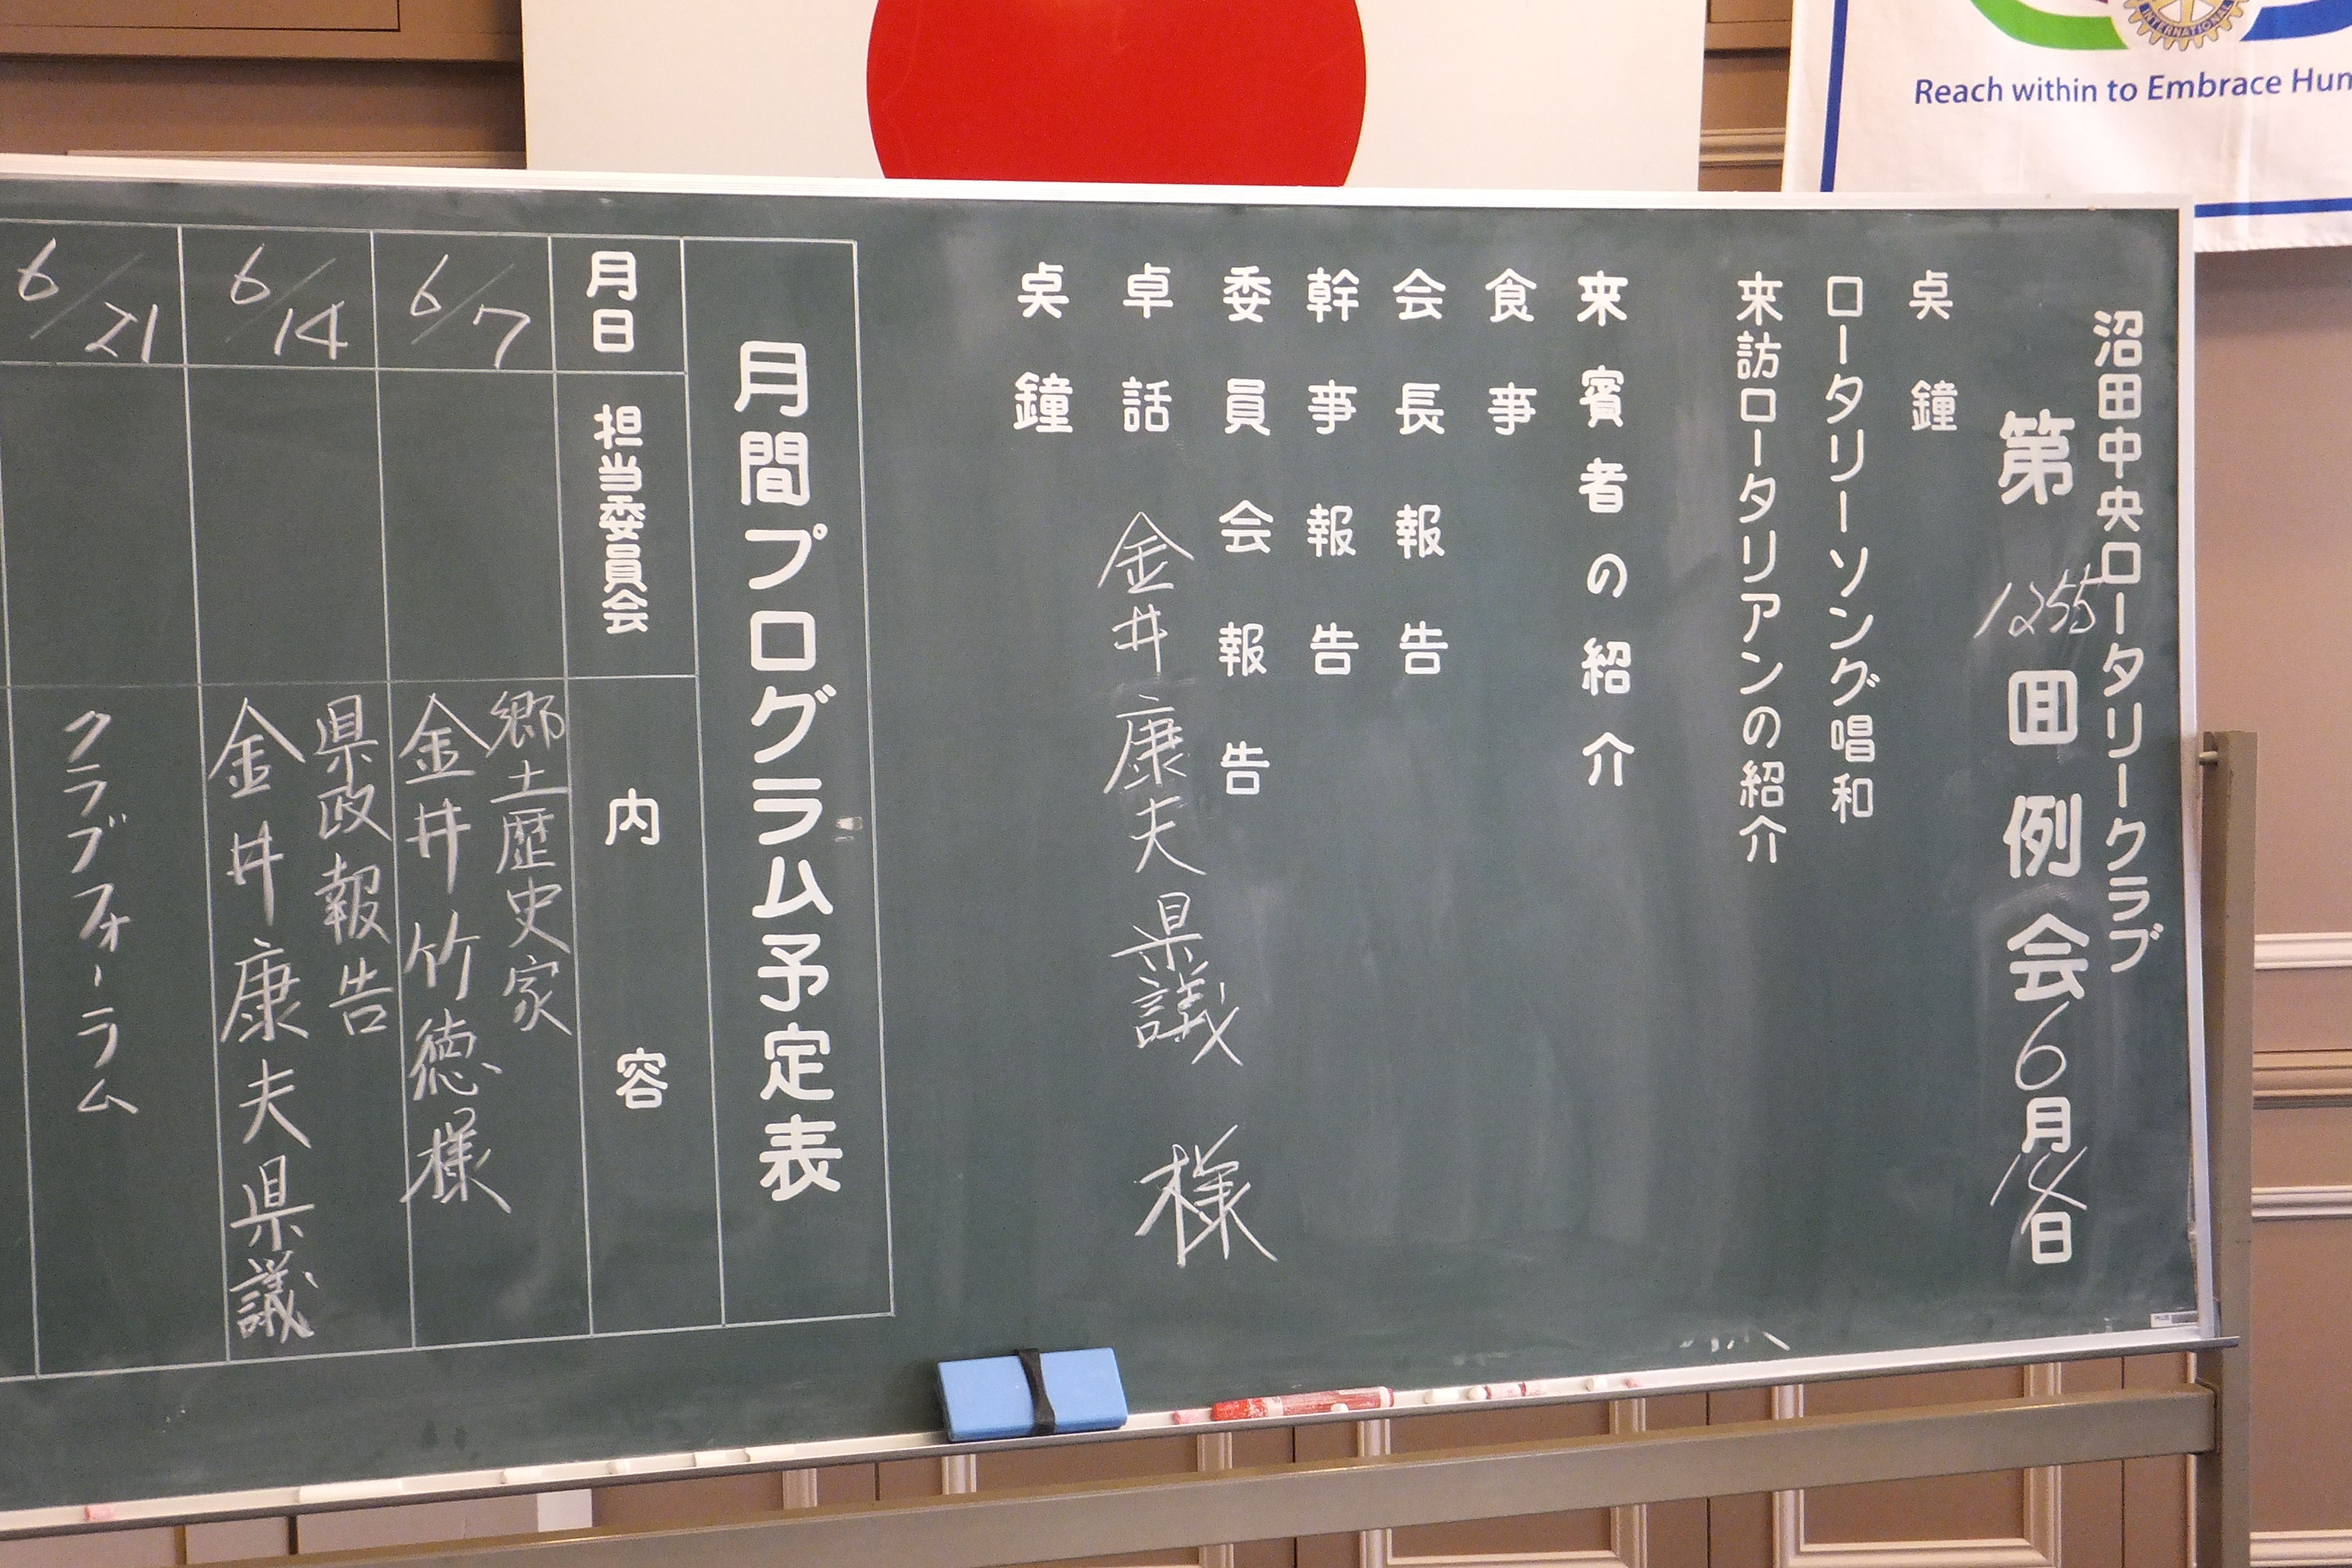 INTERNATIONAL
Reach within to Embrace Hum
沼田中央ロータリークラブ
第1255回例会6月14日
点鐘
ロータリーソング唱和
来訪ロータリアンの紹介
来賓者の紹介
食事
会長報告
幹事報告
委員会報告
卓話 金井康夫県議 様
点鐘
月間プログラム予定表
月日 担当委員会 内容
6/7 郷土歴史家
金井竹徳様
6/14 県政報告
金井康夫県議
6/21 クラブフォーラム